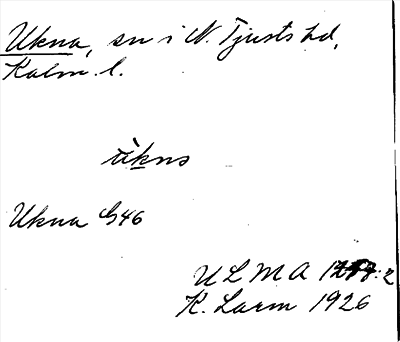 Ukna, sn i N. Tjusts hd,
Kalm. l.
ùkna
Ukna G46
ULMA :2
K. Larm 1926